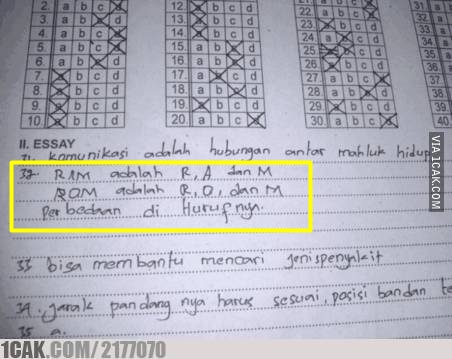 2. a b c d 12. a b c d 22. a b c d 31.
3. a b c d 13. a b c d 23. a b c d 32.
4. a b c d 14. a b c d 24. a b c d 33.
5. a b c d 15. a b c d 25. a b c d 34.
6. a b c d 16. a b c d 26. a b c d 36.
7. a b c d 17. a b c d 27. a b c d 37.
8. a b c d 18. a b c d 28. a b c d 38.
9. a b c d 19. a b c d 29. a b c d 39.
10. a b c d 20. a b c d 30. a b c d 40.
II. ESSAY
31. komunikasi adalah hubungan antar mahluk hidup
32. RAM adalah R, A dan M
ROM adalah R, O, dan M
Perbedaan di Hurufnya.
33 bisa membantu mencari jenispenyakit
34. jarak pandang nya harus sesuai, posisi bandan te
35 a.
VIA 1CAK.COM
1CAK.COM/2177070